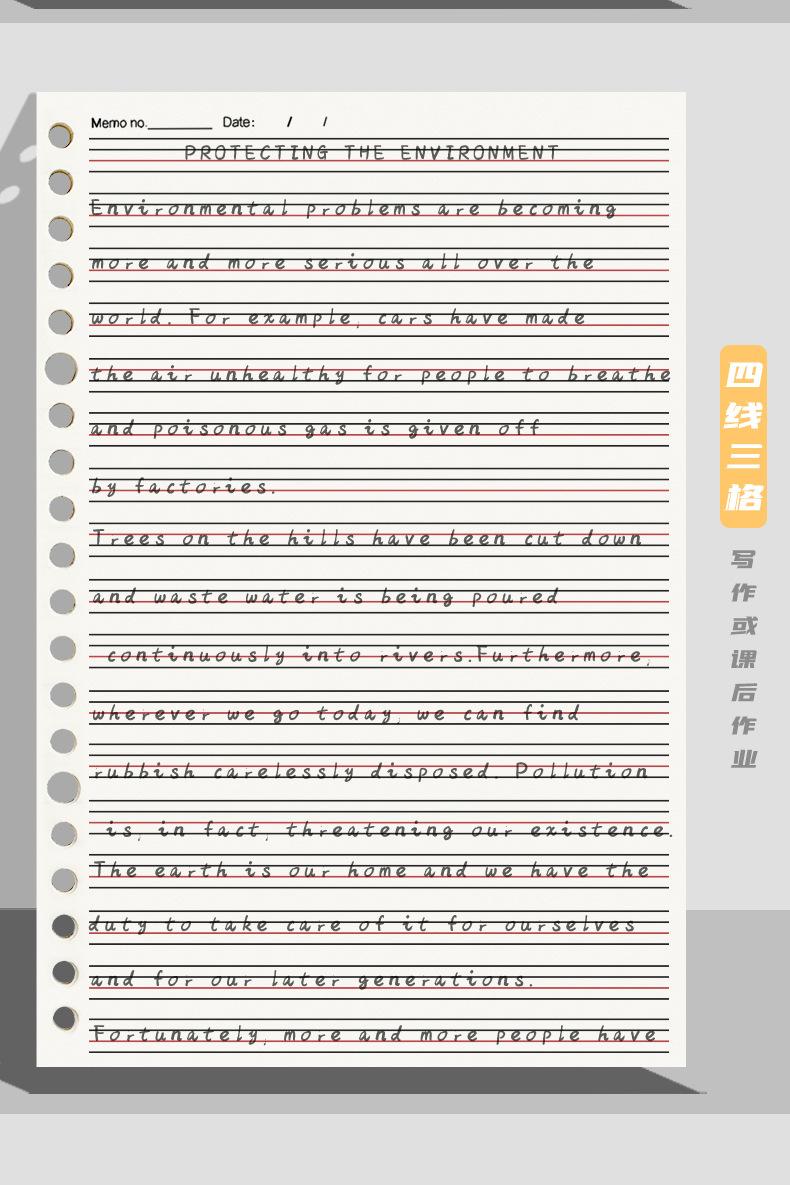 Memo no. Date: / /
PROTECTING THE ENVIRONMENT
Environmental problems are becoming
more and more serious all over the
world. For example, cars have made
the air unhealthy for people to breathe
and poisonous gas is given off
by factories.
Trees on the hills have been cut down
and waste water is being poured
continuously into rivers.Furthermore,
wherever we go today, we can find
rubbish carelessly disposed. Pollution
is, in fact, threatening our existence.
The earth is our home and we have the
duty to take care of it for ourselves
and for our later generations.
Fortunately, more and more people have
四线三格
写作或课后作业